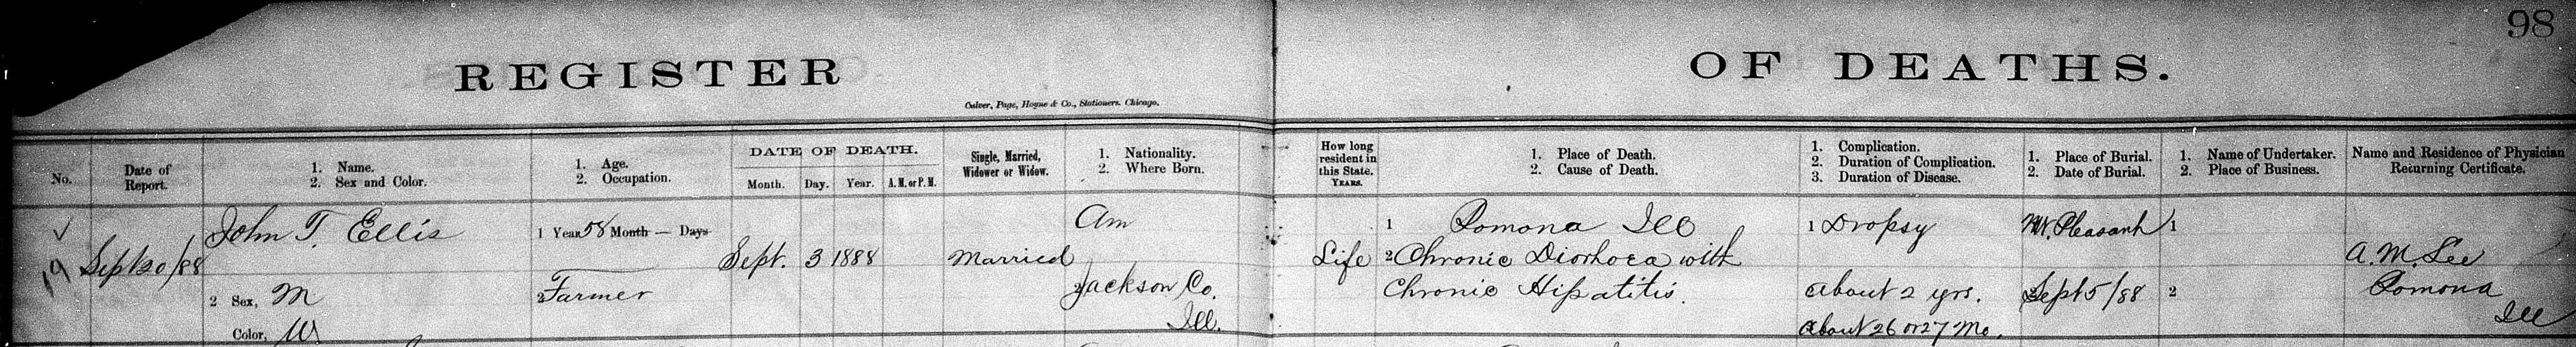 98
REGISTER OF DEATHS.
Culver, Page, Hoyne & Co., Stationers. Chicago.
No.
Date of
Report.
1. Name.
2. Sex and Color.
1. Age.
2. Occupation.
DATE OF DEATH.
Month. Day. Year. A.M. or P.M.
Single, Married,
Widower or Widow.
1. Nationality.
2. Where Born.
How long
resident in
this State.
YEARS.
1. Place of Death.
2. Cause of Death.
1. Complication.
2. Duration of Complication.
3. Duration of Disease.
1. Place of Burial.
2. Date of Burial.
1. Name of Undertaker.
2. Place of Business.
Name and Residence of Physician
Returning Certificate.
✓
19
Sept 20/88
John T. Ellis
2 Sex, M
Color, W
1 Year 58 Month — Days
2 Farmer
Sept. 3 1888
Married
Am
2 Jackson Co.
Ill.
Life
1 Pomona Ill
2 Chronic Diorhoea with
Chronic Hipatitis.
1 Dropsy
about 2 yrs.
about 26 or 27 Mo.
Mt. Pleasant
Sept 5/88
1
2
A. M. Lee
Pomona
Ill